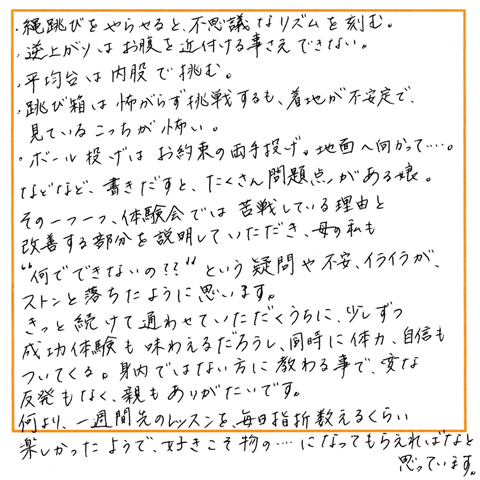 ・縄跳びをやらせると、不思議なリズムを刻む。
・逆上がりはお腹を近付ける事さえできない。
・平均台は内股で挑む。
・跳び箱は怖がらず挑戦するも、着地が不安定で、
見ているこっちが怖い。
・ボール投げはお約束の両手投げ。地面へ向かって‥‥。
などなど、書きだすと、たくさん問題点がある娘。
その一つ一つ、体験会では苦戦している理由と
改善する部分を説明していただき、母の私も
"何でできないの??"という疑問や不安、イライラが、
ストンと落ちたように思います。
きっと続けて通わせていただくうちに、少しずつ
成功体験も味わえるだろうし、同時に体力、自信も
ついてくる。身内ではない方に教わる事で、変な
反発もなく、親もありがたいです。
何より、一週間先のレッスンを、毎日指折数えるくらい
楽しかったようで、好きこそ物の‥‥になってもらえればなと
思っています。